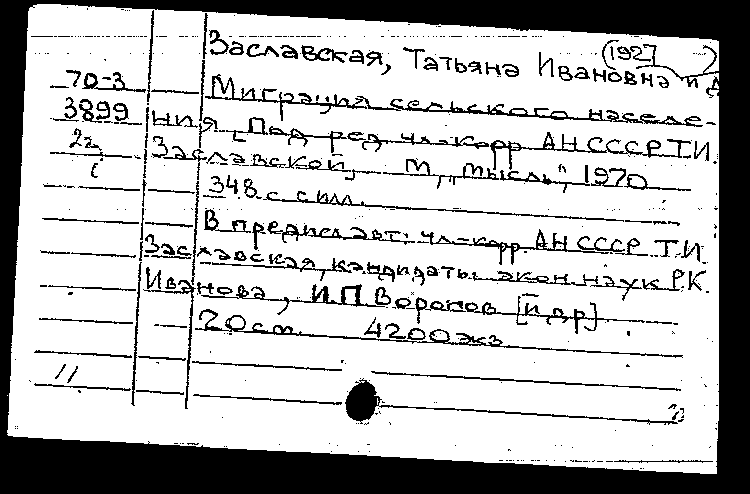 (1927 )
Заславская, Татьяна Ивановна и д
70-3 Миграция сельского населе-
3899 ния [Под ред. чл-корр АН СССР Т.И.
2г Заславской, М, „Мысль", 1970
348 с с илл.
В предисл авт: чл-корр АН СССР Т.И.
Заславская, кандидаты экон. наук Р.К.
Иванова, И.П Воронов [и др]
20 см. 4200 экз
11